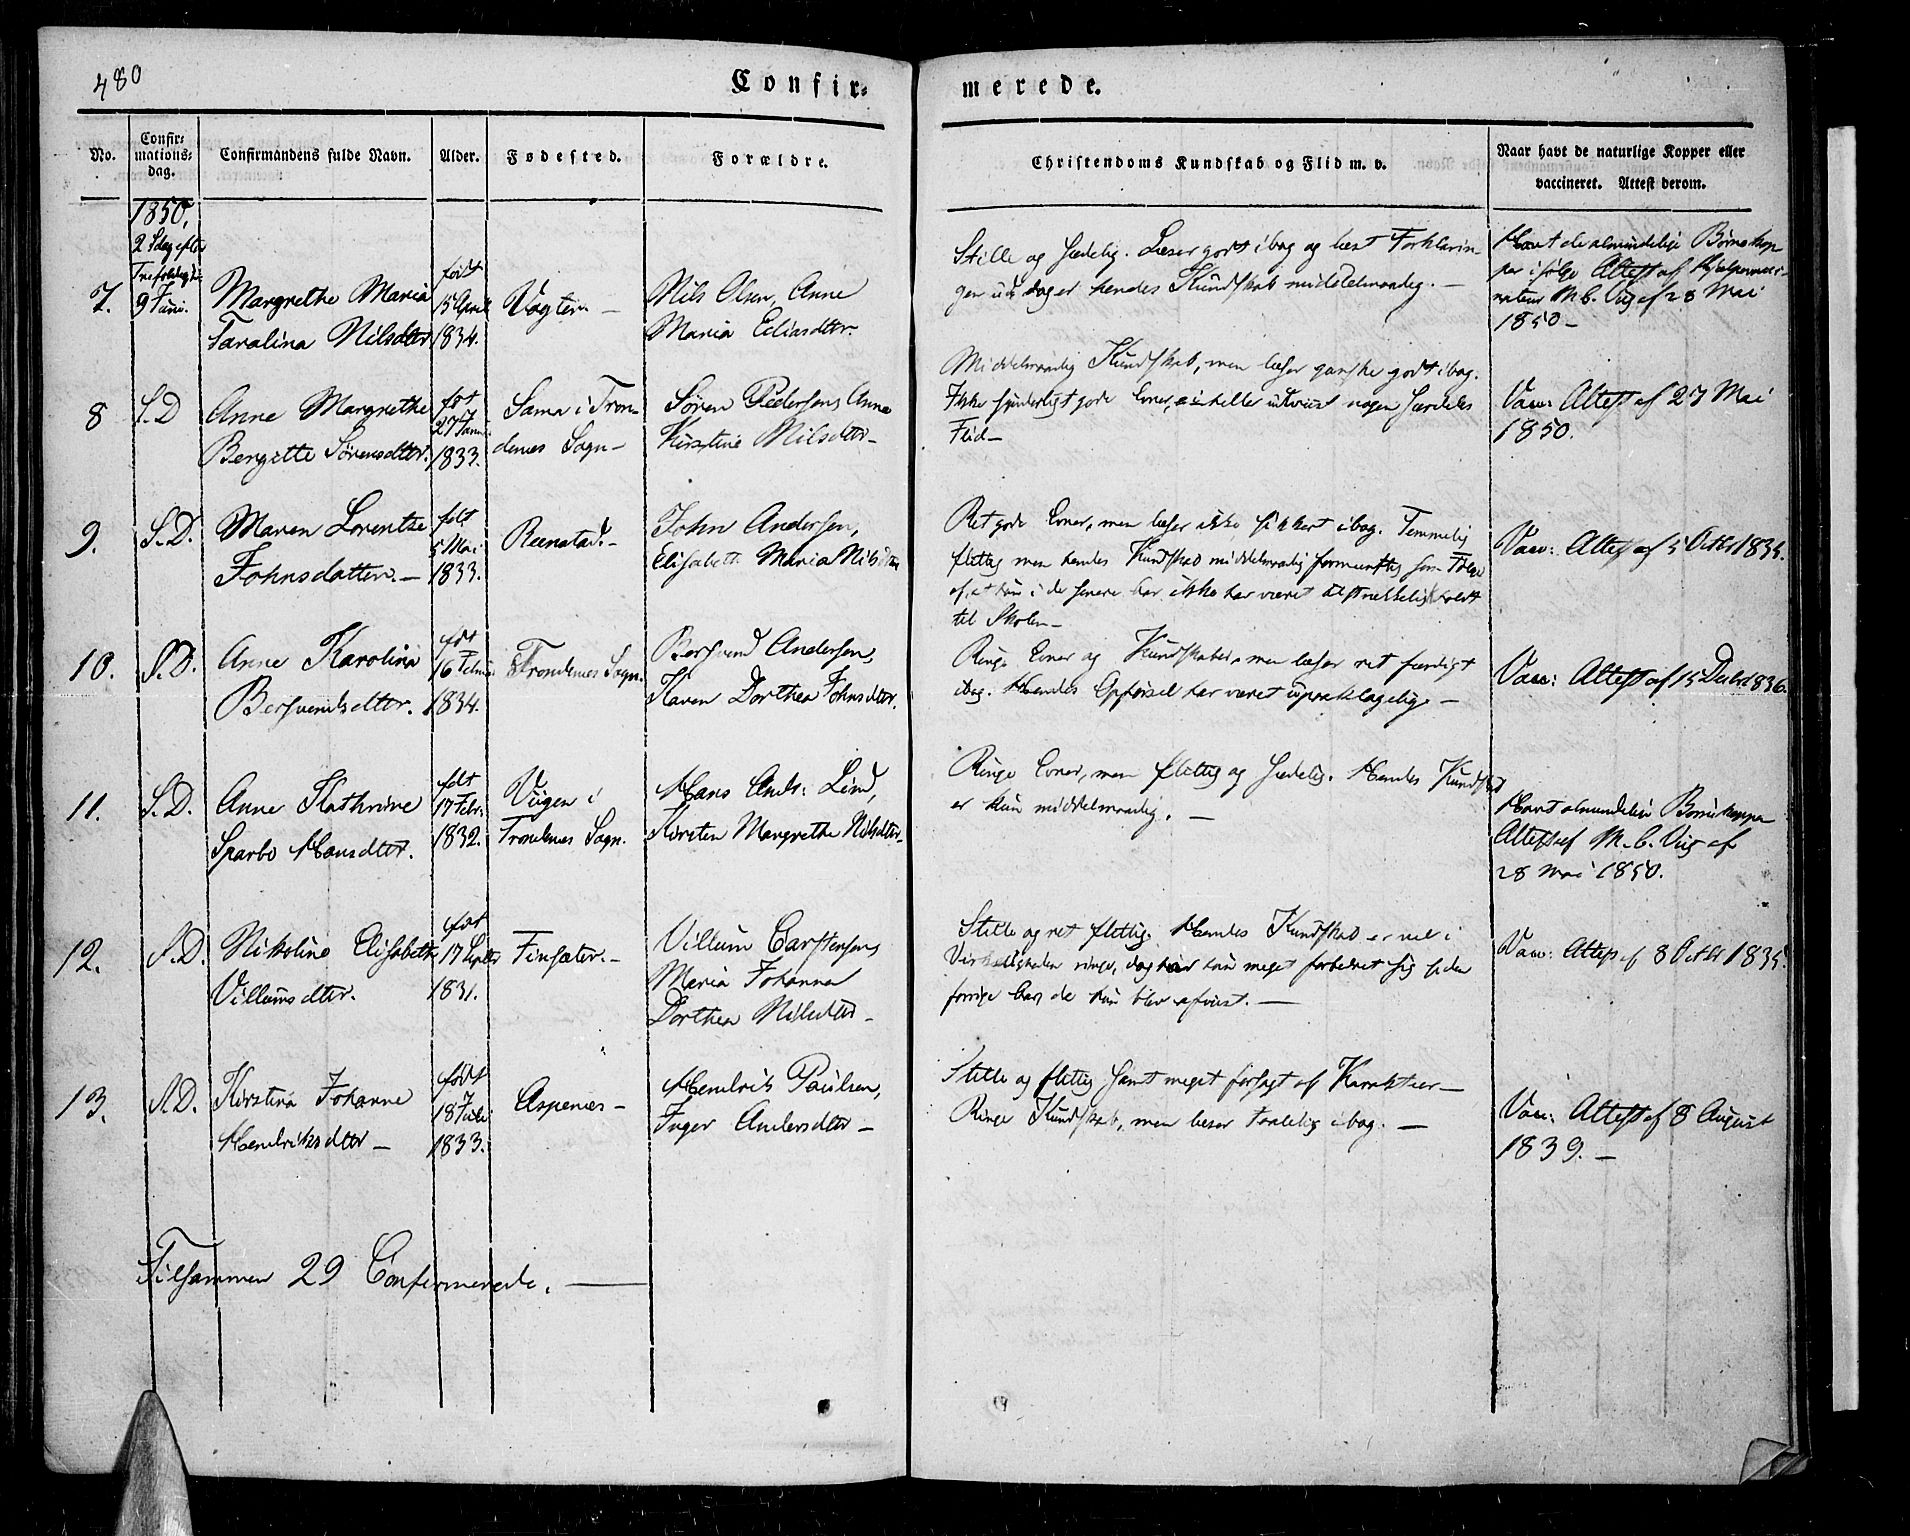 480
Confir-
merede.
No.
Confir-
mations-
dag.
Confirmandens fulde Navn.
Alder.
Fødested.
Forældre.
Christendoms Kundskab og Flid m. v.
Naar havt de naturlige Kopper eller
vaccineret. Attest derom.
1850,
2 Sdag efter
9 Juni.
7.
Margrethe Maria
Taralina Nilsdtr
født
15 April
1834.
Vogten. —
Nils Olsen, Anne
Maria Eliasdtr.
Stille og sædelig. Læser godt i bog og læst Forklarin-
gen ud, dog er hendes Kundskab middelmaadig. —
Havt de almindelige Børnekop-
per ifølge Attest af
M. C. Vig af 28 Mai
1850 —
8
S. D
Anne Margrethe
Bergitte Sørensdtr.
født
27 Janu
1833.
Sama i Tron-
denes Sogn —
Søren Pedersen, Anne
Kirstine Nilsdtr —
Middelmaadig Kundskab, men læser ganske godt i bog.
Ikke synderligt gode Evner, ei heller udviist nogen særdeles
Flid —
Vacc: Attest af 27 Mai
1850.
9.
S. D.
Maren Lorentze
Johnsdatter. —
født
5 Mai
1833.
Reenstad. —
John Andersen,
Elisabeth Maria Nilsdtr
Ret gode Evner, men læser ikke sikkert i bog. Temmelig
flittig men hendes Kundskab middelmaadig formentlig som Følge
af, at hun i de senere Aar ikke har været tilstrækkelig holdt
til Skolen —
Vacc: Attest af 5 Octbr 1835.
10.
S. D.
Anne Karolina
Bersvendsdtr.
født
16 Febru
1834.
Trondenes Sogn.
Bersvend Andersen,
Karen Dorthea Johnsdtr.
Ringe Evner og Kundskaber, men læser ret færdigt
i bog. Hendes Opførsel har været upaaklagelig. —
Vacc: Attest af 15 Decbr 1836.
11.
S. D.
Anne Kathrine
Sparbo Hansdtr.
født
17 Febr.
1832.
Viigen i
Trondenes Sogn.
Hans Andr: Lind,
Kirsten Margrethe Nilsdtr. —
Ringe Evner, men flittig og sædelig. Hendes Kundskab
er kun middelmaadig. —
Havt almindelige Børnekopper
Attest af M. C. Vig af
28 Mai 1850.
12.
S. D.
Nikoline Elisabeth
Villumsdtr.
født
17 Septbr
1831.
Finsæter. —
Villum Carstensen,
Maria Johanna
Dorthea Nilsdtr —
Stille og ret flittig. Hendes Kundskab er vel i
Virkeligheden ringe, dog har hun meget forbedret sig siden
forrige Gang de hun blev afviist. —
Vacc: Attest af 8 Octbr 1835.
13.
S. D.
Kirstina Johanne
Hendriksdtr —
født
18 Juli
1833.
Aspenæs —
Hendrik Paulsen,
Inger Andersdtr —
Stille og flittig samt meget forsagt af Karakteer —
Ringe Kundskab, men læser taalelig i bog. —
Vacc: Attest af 8 August
1839. —
Tilsammen 29 Confirmerede. —